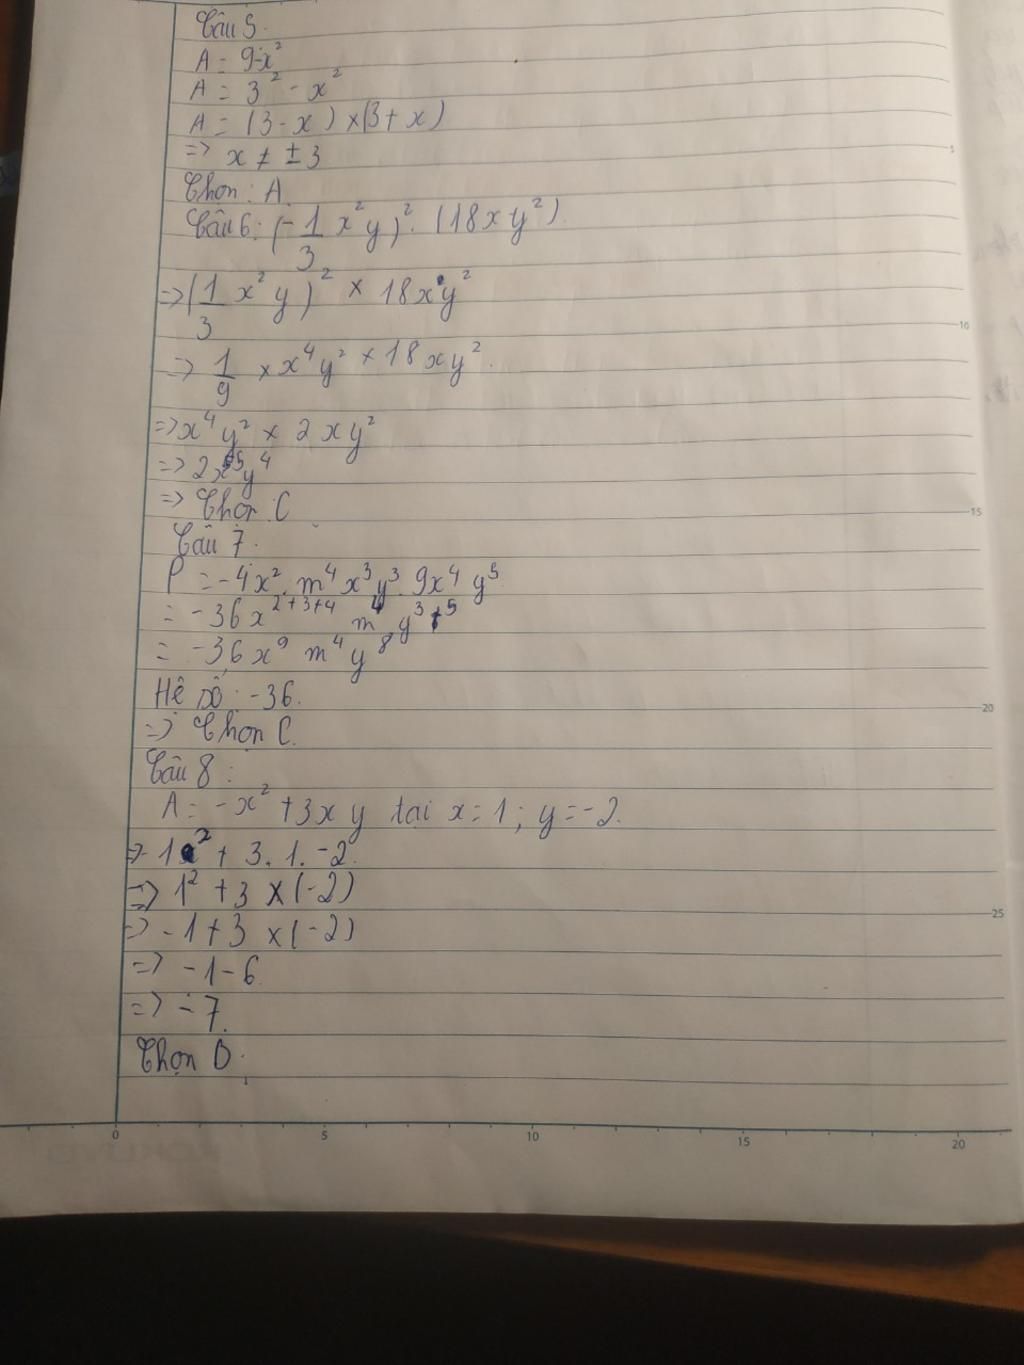 Câu 5.
A = 9-x²
A = 3² - x²
A = (3-x) × (3+x)
=> x ≠ ±3
Chọn: A.
Câu 6: (-1/3 x²y)². (18xy²).
=> (1/3 x²y)² × 18xy²
=> 1/9 × x⁴y² × 18xy².
=> x⁴y² × 2xy²
=> 2x⁵y⁴
=> Chọn C
Câu 7.
P = -4x². m⁴x³y³. 9x⁴y⁵
= -36x²⁺³⁺⁴ m⁴ y³⁺⁵
= -36x⁹ m⁴y⁸
Hệ số: -36.
=> Chọn C.
Câu 8:
A = -x² + 3xy tại x=1; y=-2.
=> -1² + 3. 1. -2.
=> 1² + 3 × (-2)
=> -1+3 × (-2)
=> -1-6.
=> -7.
Chọn D.
5
10
15
20
25
0 5 10 15 20